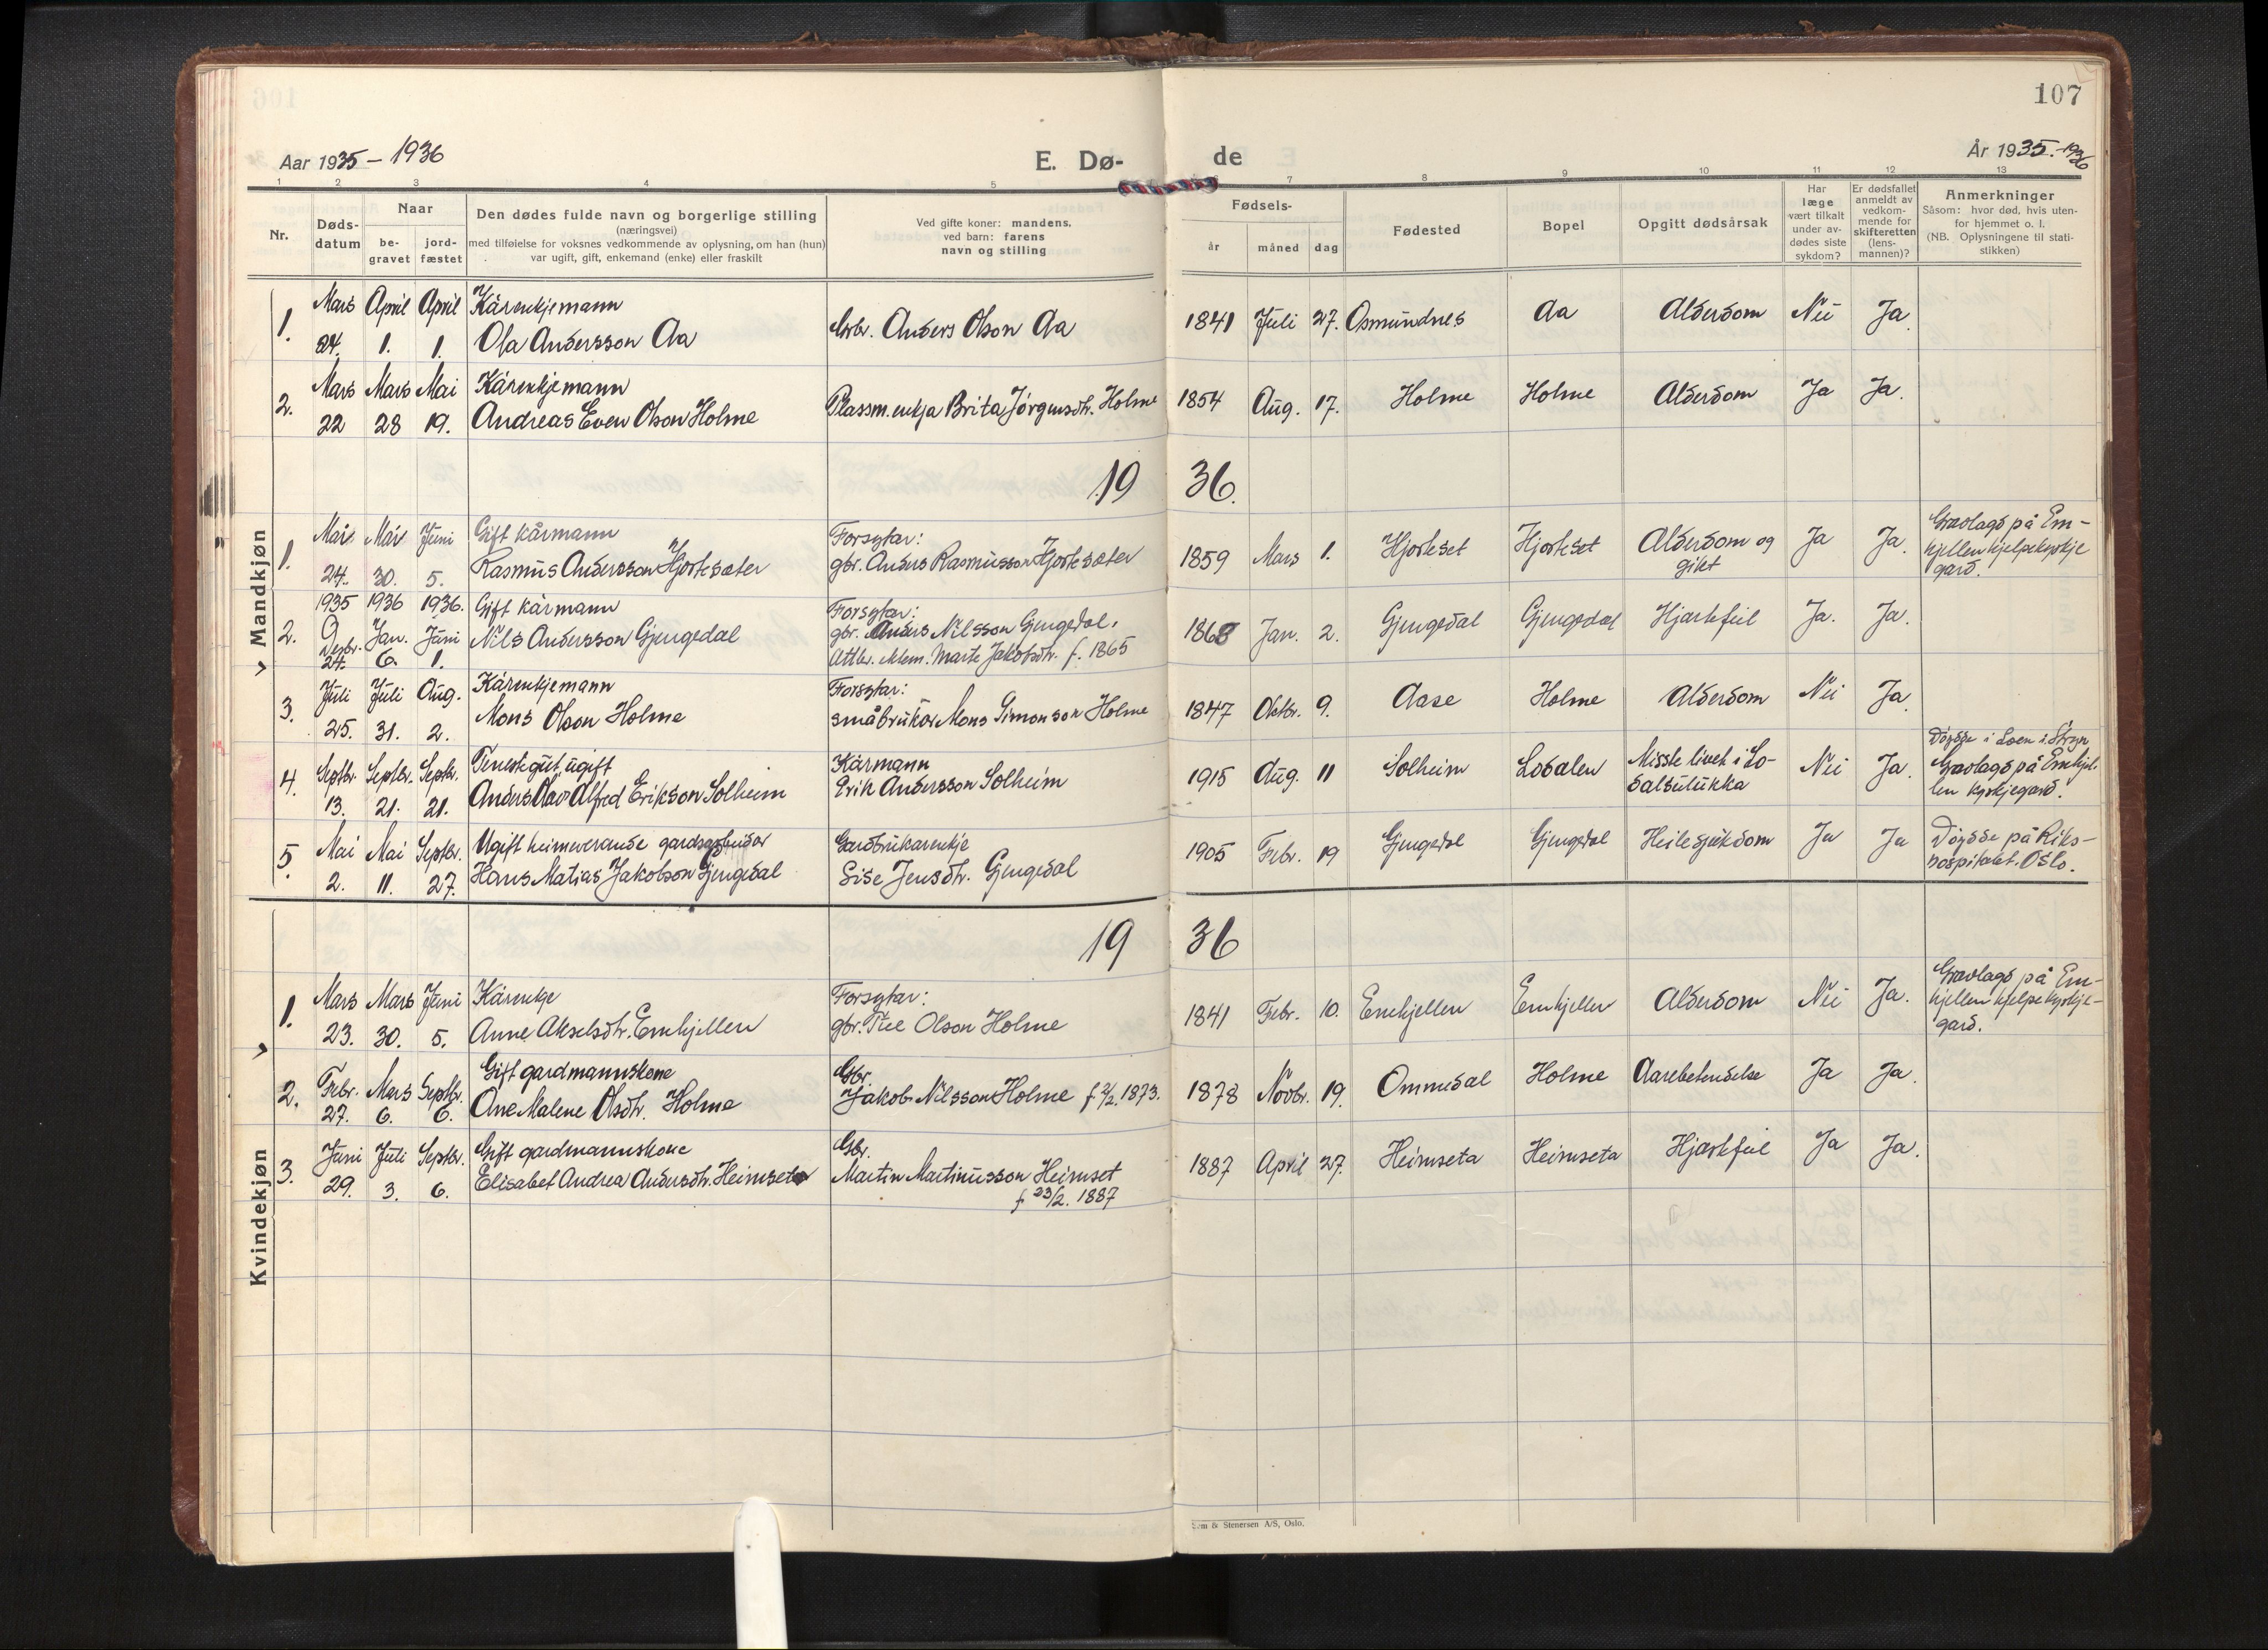 107
Aar 1935 – 1936
E. Dø-
de
År 1935.-1936
1 2 3 4 5 7 8 9 10 11 12 13
Nr.
Døds-
datum
Naar
be-
gravet
jord-
fæstet
Den dødes fulde navn og borgerlige stilling
(næringsvei)
med tilføielse for voksnes vedkommende av oplysning, om han (hun)
var ugift, gift, enkemand (enke) eller fraskilt
Ved gifte koner: mandens,
ved barn: farens
navn og stilling
Fødsels-
år måned dag
Fødested
Bopel
Opgitt dødsårsak
Har
læge
vært tilkalt
under av-
dødes siste
sykdom?
Er dødsfallet
anmeldt av
vedkom-
mende for
skifteretten
(lens-
mannen)?
Anmerkninger
Såsom: hvor død, hvis uten-
for hjemmet o. l.
(NB. Oplysningene til stati-
stikken)
Mandkjøn
Mars April April Kårenkjemann
1. 24. 1. 1. Ola Andersson Aa Gbr. Anders Olson Aa 1841 Juli 27. Osmundnes Aa Alderdom Nei Ja.
Mars Mars Mai Kårenkjemann
2. 22 28 19. Andreas Even Olson Holme Plassm.enkja Brita Jørgensdtr. Holme 1854 Aug. 17. Holme Holme Alderdom Ja Ja.
19 36.
Mai Mai Juni Gift kårmann Forsytar:
1. 24. 30. 5. Rasmus Andersson Hjortesæter gbr. Anders Rasmusson Hjortesæter 1859 Mars 1. Hjorteset Hjorteset Alderdom og
gikt Ja Ja. Gravlagd på Em-
hjellen hjelpekyrkje
gard.
1935 1936 1936. Gift kårmann Forsytar:
2. Desbr. Jan. Juni Nils Andersson Gjengedal gbr. Anders Nilsson Gjengedal.
24. 6. 1. Attlv. ektem. Marte Jakobsdtr. f. 1865 1868 Jan. 2. Gjengedal Gjengedal Hjartefeil Ja. Ja.
Juli Juli Aug. Kårenkjemann Forsytar:
3. 25. 31. 2. Mons Olson Holme småbrukar Mons Simonson Holme 1847 Oktbr. 9. Aase Holme Alderdom Nei Ja.
Septbr. Septbr. Septbr. Tenestegut, ugift Kårmann
4. 13. 21. 21. Anders Olav Alfred Erikson Solheim Erik Andersson Solheim 1915 Aug. 11 Solheim Lodalen Misste livet i Lo-
dalsulukka Nei Ja. Døydde i Loen i Stryn
Gravlagd på Emhjel-
len kyrkjegard.
Mai Mai Septbr. Ugift heimeverande gardsarbeidar Gardbrukarenkje
5. 2. 11. 27. Hans Matias Jakobson Gjengedal Sise Jensdtr. Gjengedal 1905 Febr. 19 Gjengedal Gjengedal Heilesjukdom Ja Ja Døydde på Riks-
hospitalet. Oslo.
19 36
Kvindekjøn
Mars Mars Juni Kårenkje Forsytar:
1. 23. 30. 5. Anne Akselsdtr. Emhjellen gbr. Olson Holme 1841 Febr. 10. Emhjellen Emhjellen Alderdom Nei Ja. Gravlagd på Em-
hjellen hjelpekyrkje-
gard.
Febr. Mars Septbr. Gift gardmannskone Gbr.
2. 27. 6. 6. Ane Malene Olsdtr. Holme Jakob Nilsson Holme f 2/2. 1873. 1878 Novbr. 19. Ommedal Holme Aarebetendelse Ja Ja.
Juni Juli Septbr. Gift gardmannskone Gbr.
3. 29. 3. 6. Elisabet Andrea Andersdtr. Heimseta Martin Martinusson Heimset
f 23/2. 1887 1887 April 27. Heimseta Heimseta Hjartefeil Ja Ja.
Sem & Stenersen A/S, Oslo.